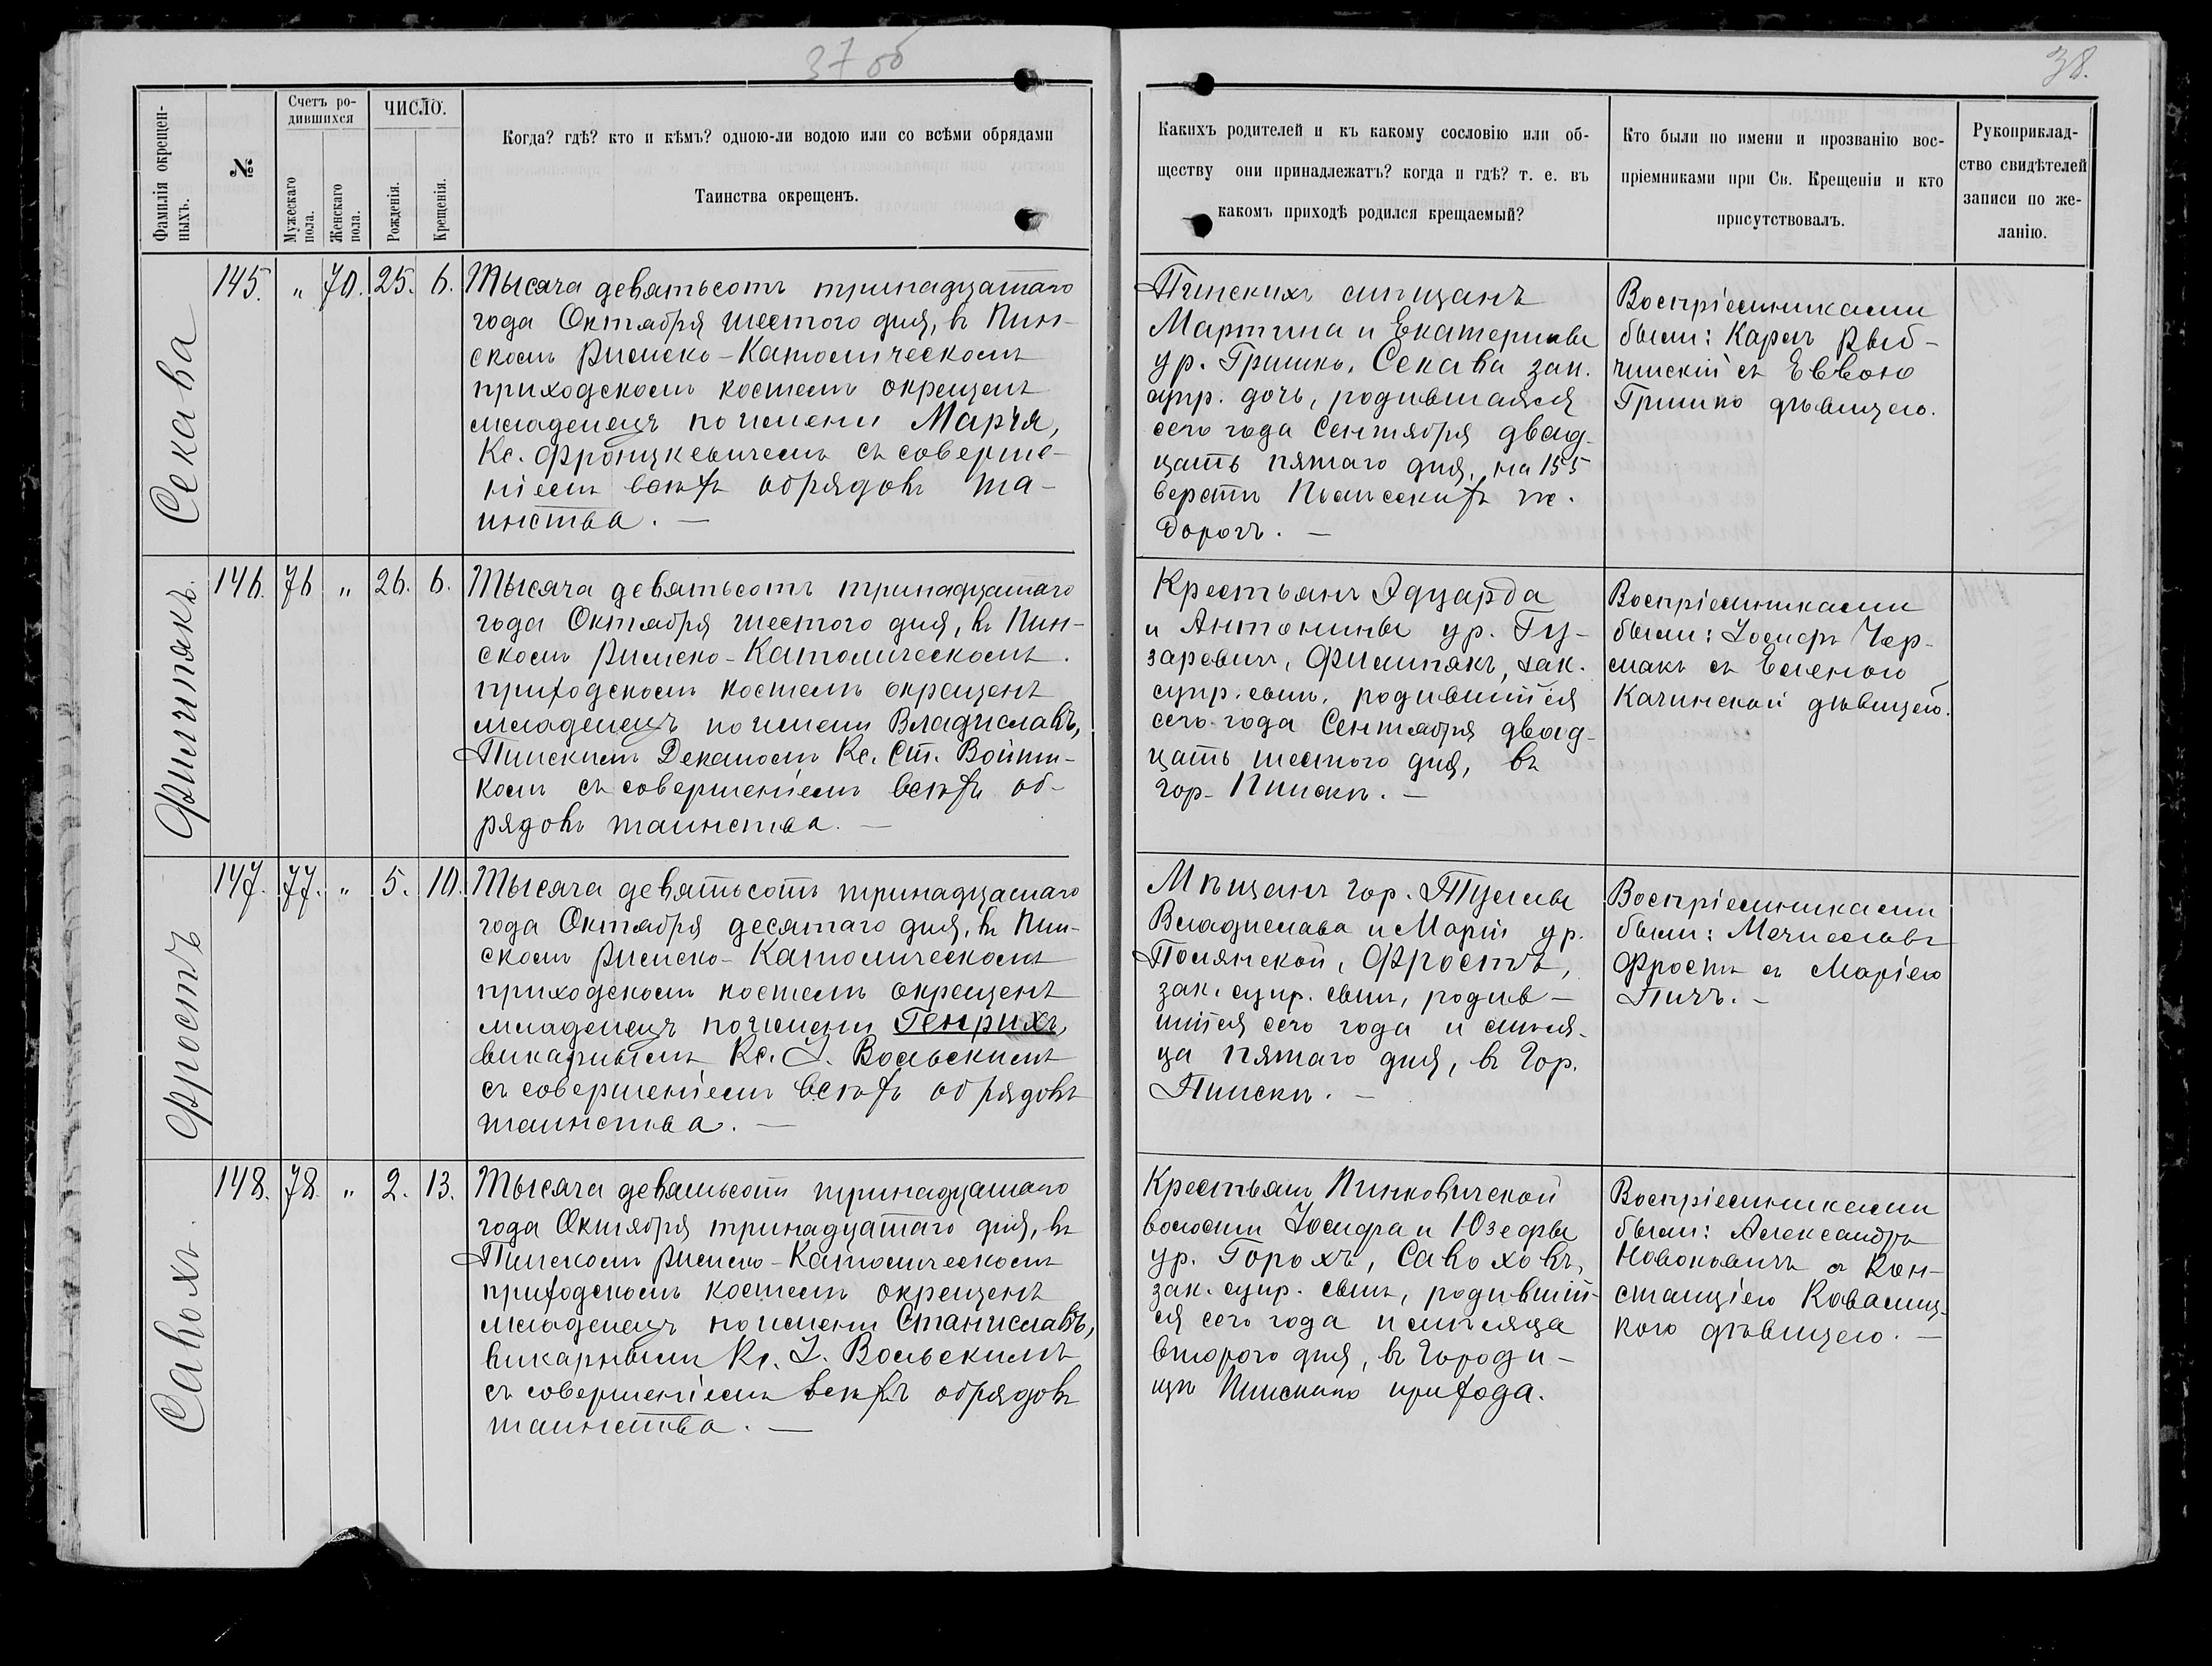 37 об
38.
Фамилія окрещен-
ныхъ.
№
Счетъ ро-
дившихся
Мужескаго
пола.
Женскаго
пола.
ЧИСЛО.
Рожденія.
Крещенія.
Когда? гдѣ? кто и кѣмъ? одною-ли водою или со всѣми обрядами
Таинства окрещенъ.
Какихъ родителей и къ какому сословію или об-
ществу они принадлежатъ? когда и гдѣ? т. е. въ
какомъ приходѣ родился крещаемый?
Кто были по имени и прозванію вос-
пріемниками при Св. Крещеніи и кто
присутствовалъ.
Рукоприклад-
ство свидѣтелей
записи по же-
ланію.
Секава
145. " 70. 25. 6.
Тысяча девятьсотъ тринадцатаго
года Октября шестого дня, въ Пин-
скомъ Римско-Католическомъ
приходскомъ костелѣ окрещенъ
младенецъ по имени Марія,
Кс. Фронцкевичемъ съ соверше-
ніемъ всѣхъ обрядовъ та-
инства. —
Пинскихъ мѣщанъ
Мартина и Екатерины
ур. Гришко, Секава зак.
супр. дочь, родившаяся
сего года Сентября двад-
цать пятаго дня, на 155
верстѣ Полѣсскихъ ж.
дорогъ. —
Воспріемниками
были: Карлъ Рыб-
чинскій съ Еввою
Гришко дѣвицею.
Филипякъ.
146. 76 " 26. 6.
Тысяча девятьсотъ тринадцатаго
года Октября шестого дня, въ Пин-
скомъ Римско-Католическомъ
приходскомъ костелѣ окрещенъ
младенецъ по имени Владиславъ,
Пинскимъ Деканомъ Кс. Ст. Войти-
комъ съ совершеніемъ всѣхъ об-
рядовъ таинства. —
Крестьянъ Эдуарда
и Антонины ур. Гу-
заревичъ, Филипякъ, зак.
супр. сынъ, родившійся
сего года Сентября двад-
цать шестого дня, въ
гор. Пинскѣ. —
Воспріемниками
были: Іосифъ Чер-
макъ съ Еленою
Качинской дѣвицей.
Фростъ
147. 77. " 5. 10.
Тысяча девятьсотъ тринадцатаго
года Октября десятаго дня, въ Пин-
скомъ Римско-Католическомъ
приходскомъ костелѣ окрещенъ
младенецъ по имени Генрихъ,
викарнымъ Кс. І. Вольскимъ
съ совершеніемъ всѣхъ обрядовъ
таинства. —
Мѣщанъ гор. Тулы
Владислава и Маріи ур.
Полянской, Фростъ,
зак. супр. сынъ, родив-
шійся сего года и мѣся-
ца пятаго дня, въ гор.
Пинскѣ. —
Воспріемниками
были: Мечиславъ
Фростъ съ Маріею
Пичъ. —
Савохъ.
148. 78. " 2. 13.
Тысяча девятьсотъ тринадцатаго
года Октября тринадцатаго дня, въ
Пинскомъ Римско-Католическомъ
приходскомъ костелѣ окрещенъ
младенецъ по имени Станиславъ,
викарнымъ Кс. І. Вольскимъ
съ совершеніемъ всѣхъ обрядовъ
таинства. —
Крестьянъ Пинковичской
волости Іосифа и Юзефы
ур. Горохъ, Савоховъ,
зак. супр. сынъ, родившій-
ся сего года и мѣсяца
второго дня, въ Городи-
щѣ Пинскаго прихода.
Воспріемниками
были: Александръ
съ Кон-
станціею
дѣвицею. —